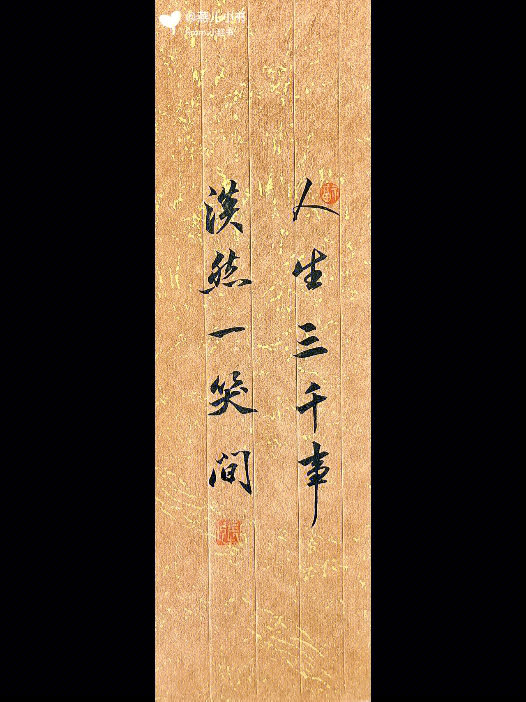 人生三千事
漠然一笑间